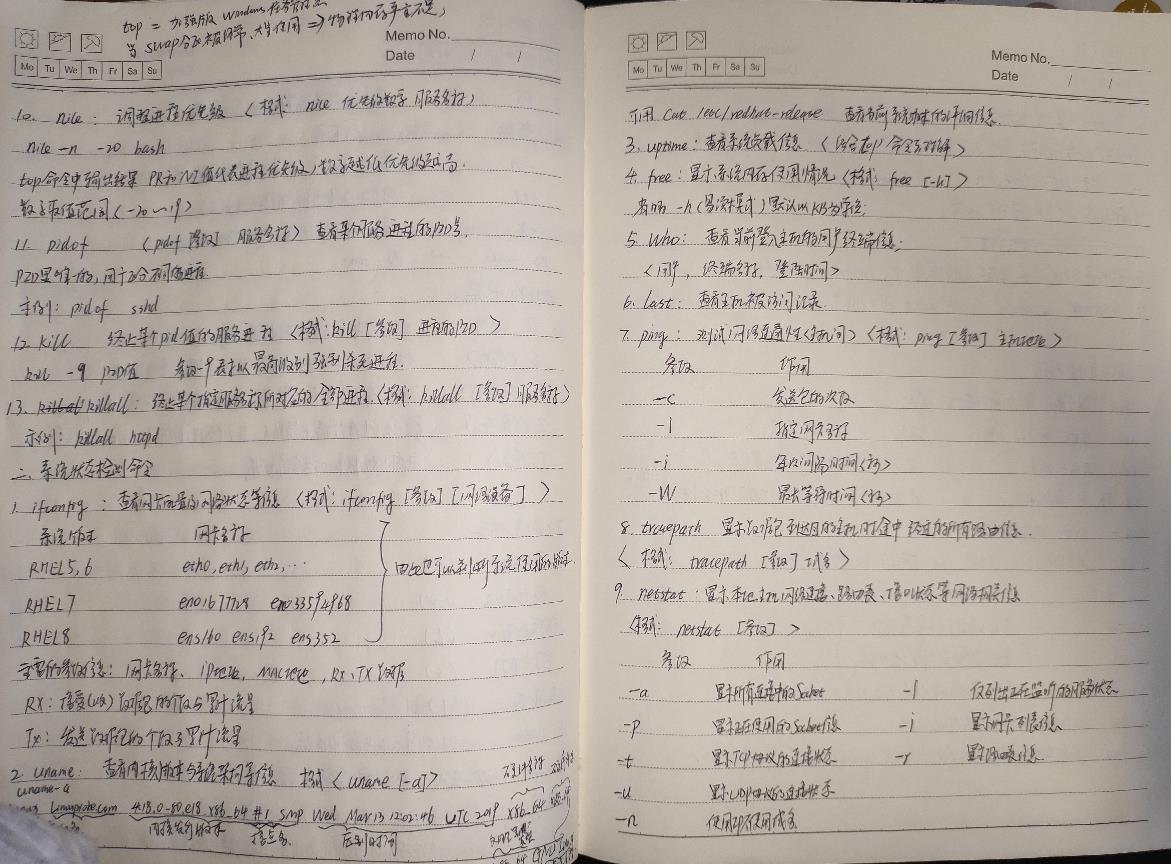 top = 加强版 Windows 任务管理器
当 swap 分区被频繁、大量使用 => 物理内存严重不足
Memo No.
Date / /
Mo Tu We Th Fr Sa Su
10. nice : 调整进程优先级 〈格式: nice 优先级数字 服务名称〉
nice -n -20 bash
top命令中输出结果 PR和NI值代表进程优先级,数字越低优先级越高.
数字取值范围〈-20~19〉
11. pidof 〈pidof [参数] 服务名称〉 查看某个服务进程的PID号
PID是唯一的,用于区分不同的进程
示例: pidof sshd
12. kill 终止某个pid值的服务进程 〈格式:kill [参数] 进程的PID 〉
kill -9 PID值 参数-9表示以最高级别强制杀死进程.
13. killall: 终止某个指定服务名称所对应的全部进程〈格式: killall [参数] 服务名称〉
示例: killall httpd
二、系统状态检测命令
1. ifconfig : 查看网卡配置及网络状态等信息 〈格式: ifconfig [参数] [网络设备] 〉
系统版本 网卡名称
RHEL5,6 eth0, eth1, eth2, ...
由此也可以判断系统使用的版本.
RHEL7 eno16777728 eno33592968
RHEL8 ens160 ens192 ens352
主要的参数信息: 网卡名称、ip地址、MAC地址、RX、TX数据
RX: 接受(收)数据包的个数与累计流量
TX: 发送数据包的个数与累计流量
2. uname: 查看内核版本与系统架构等信息 格式〈uname [-a]〉
uname -a
linuxprobe.com 4.18.0-80.el8 x86_64 #1 SMP Wed Mar 13 12:02:46 UTC 2019 x86_64
内核发行版本 压制时间
Memo No.
Date / /
Mo Tu We Th Fr Sa Su
可用 cat /etc/redhat-release 查看当前系统版本的详细信息
3. uptime: 查看系统负载信息 〈结合top命令去理解〉
4. free: 显示系统内存使用情况〈格式: free [-h]〉
若带 -h(易读模式)默认以KB为单位;
5. Who: 查看当前登入主机的用户终端信息;
〈用户, 终端名称, 登陆时间〉
6. last: 查看主机被访问记录
7. ping : 测试网络连通性〈主机间〉〈格式: ping [参数] 主机地址〉
参数 作用
-c 发送包的次数
-I 指定网卡名称
-i 每次间隔时间〈秒〉
-W 最长等待时间〈秒〉
8. tracepath 显示数据包到达目的主机时途中经过的所有路由信息.
〈 格式: tracepath [参数] 域名 〉
9. netstat : 显示本地主机网络连接、路由表、接口状态等网络相关信息
〈格式: netstat [参数] 〉
参数 作用
-a 显示所有连接中的Socket -l 仅列出正在监听的服务状态
-p 显示正在使用的Socket信息 -i 显示网卡列表信息
-t 显示TCP协议的连接状态 -r 显示路由表信息
-u 显示UDP协议的连接状态
-n 使用IP不使用域名